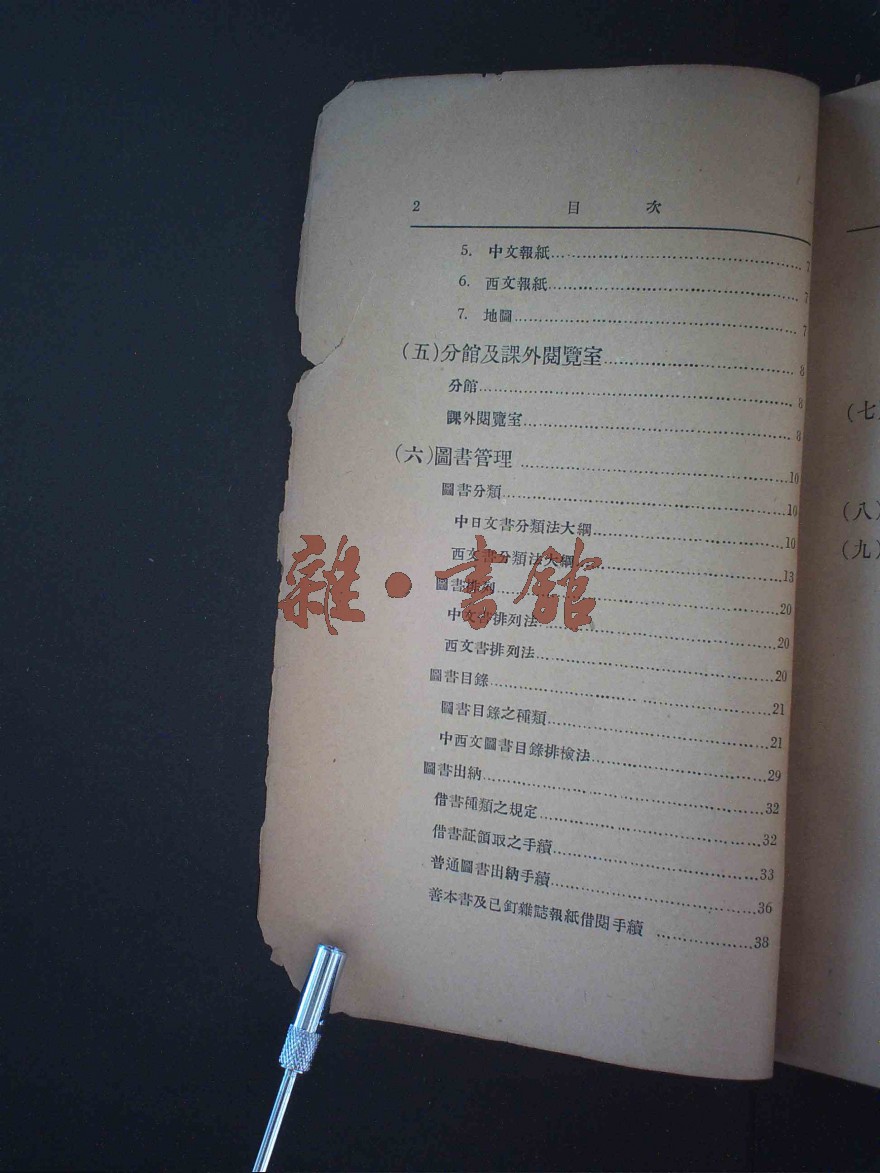 2 目 次
5. 中文報紙 7
6. 西文報紙 7
7. 地圖 7
(五)分館及課外閱覽室 8
分館 8
課外閱覽室 8
(六)圖書管理 10
圖書分類 10
中日文書分類法大綱 10
西文書分類法大綱 13
圖書排列 20
中文書排列法 20
西文書排列法 20
圖書目錄 21
圖書目錄之種類 21
中西文圖書目錄排檢法 29
圖書出納 32
借書種類之規定 32
借書証領取之手續 33
普通圖書出納手續 36
善本書及已釘雜誌報紙借閱手續 38
雜·書館
(七
(八)
(九)